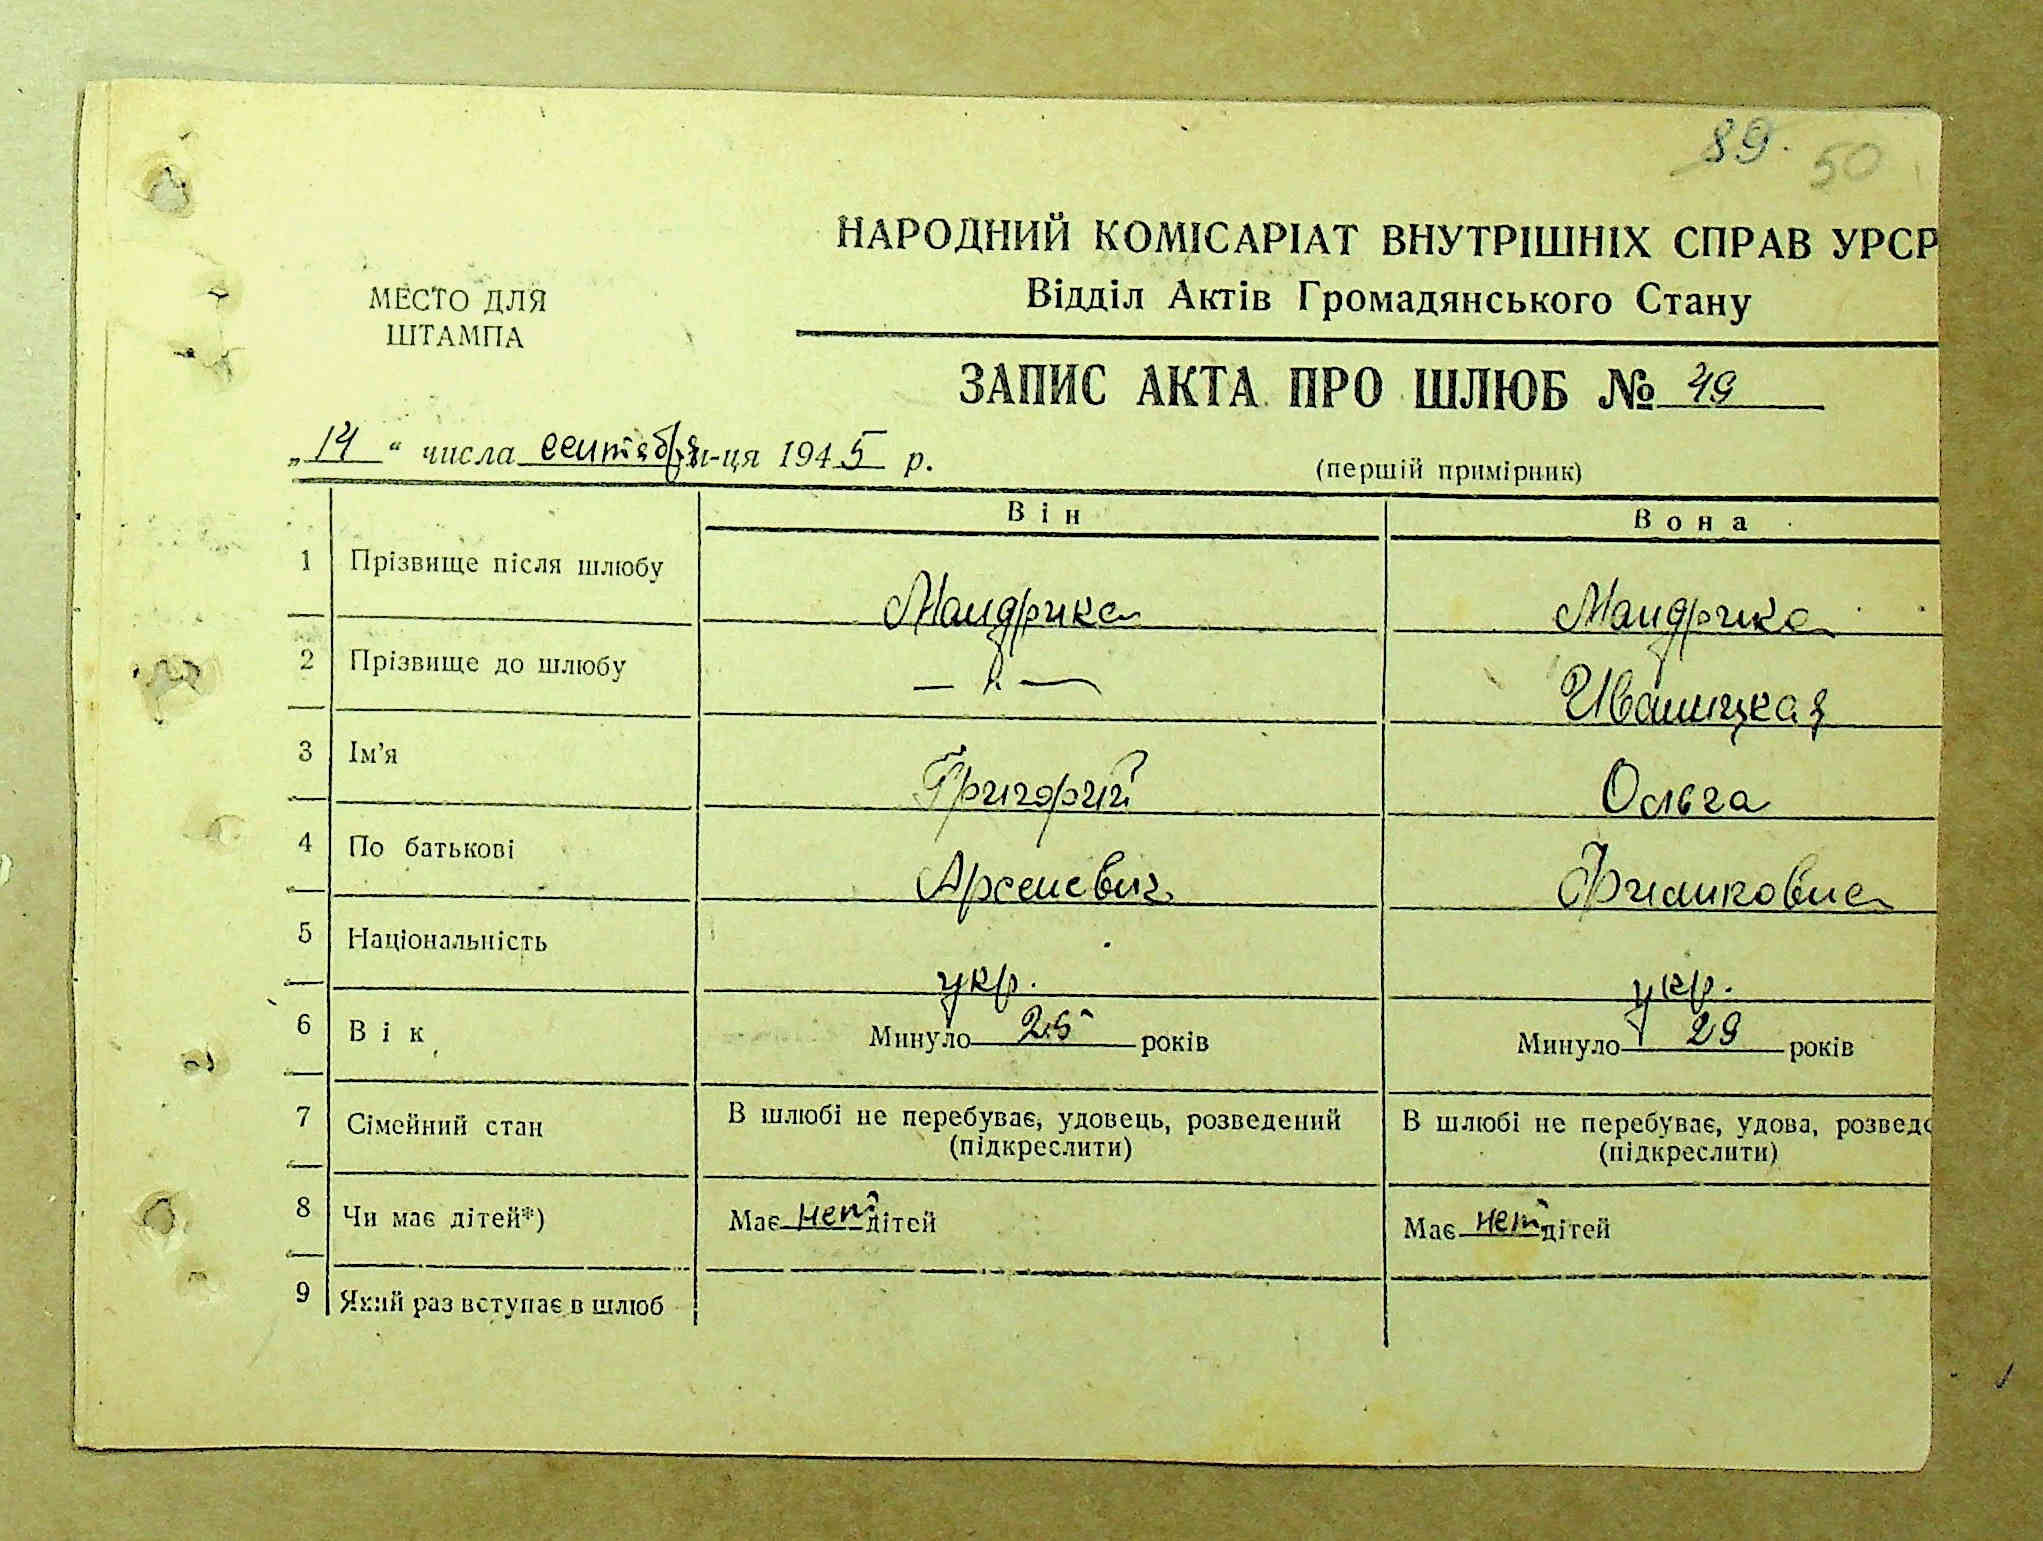 89. 50
НАРОДНИЙ КОМІСАРІАТ ВНУТРІШНІХ СПРАВ УРСР
Відділ Актів Громадянського Стану
МЕСТО ДЛЯ
ШТАМПА
ЗАПИС АКТА ПРО ШЛЮБ № 49
„14“ числа сентября м-ця 1945 р.
(перший примірник)
Він Вона
1 Прізвище після шлюбу Мандрика Мандрика
2 Прізвище до шлюбу — " — Иваницкая
3 Ім'я Григорий Ольга
4 По батькові Арсеневич
5 Національність укр. укр.
6 Вік Минуло 25 років Минуло 29 років
7 Сімейний стан В шлюбі не перебуває, удовець, розведений В шлюбі не перебуває, удова, розведе
(підкреслити) (підкреслити)
8 Чи має дітей*) Має нет дітей Має нет дітей
9 Який раз вступає в шлюб